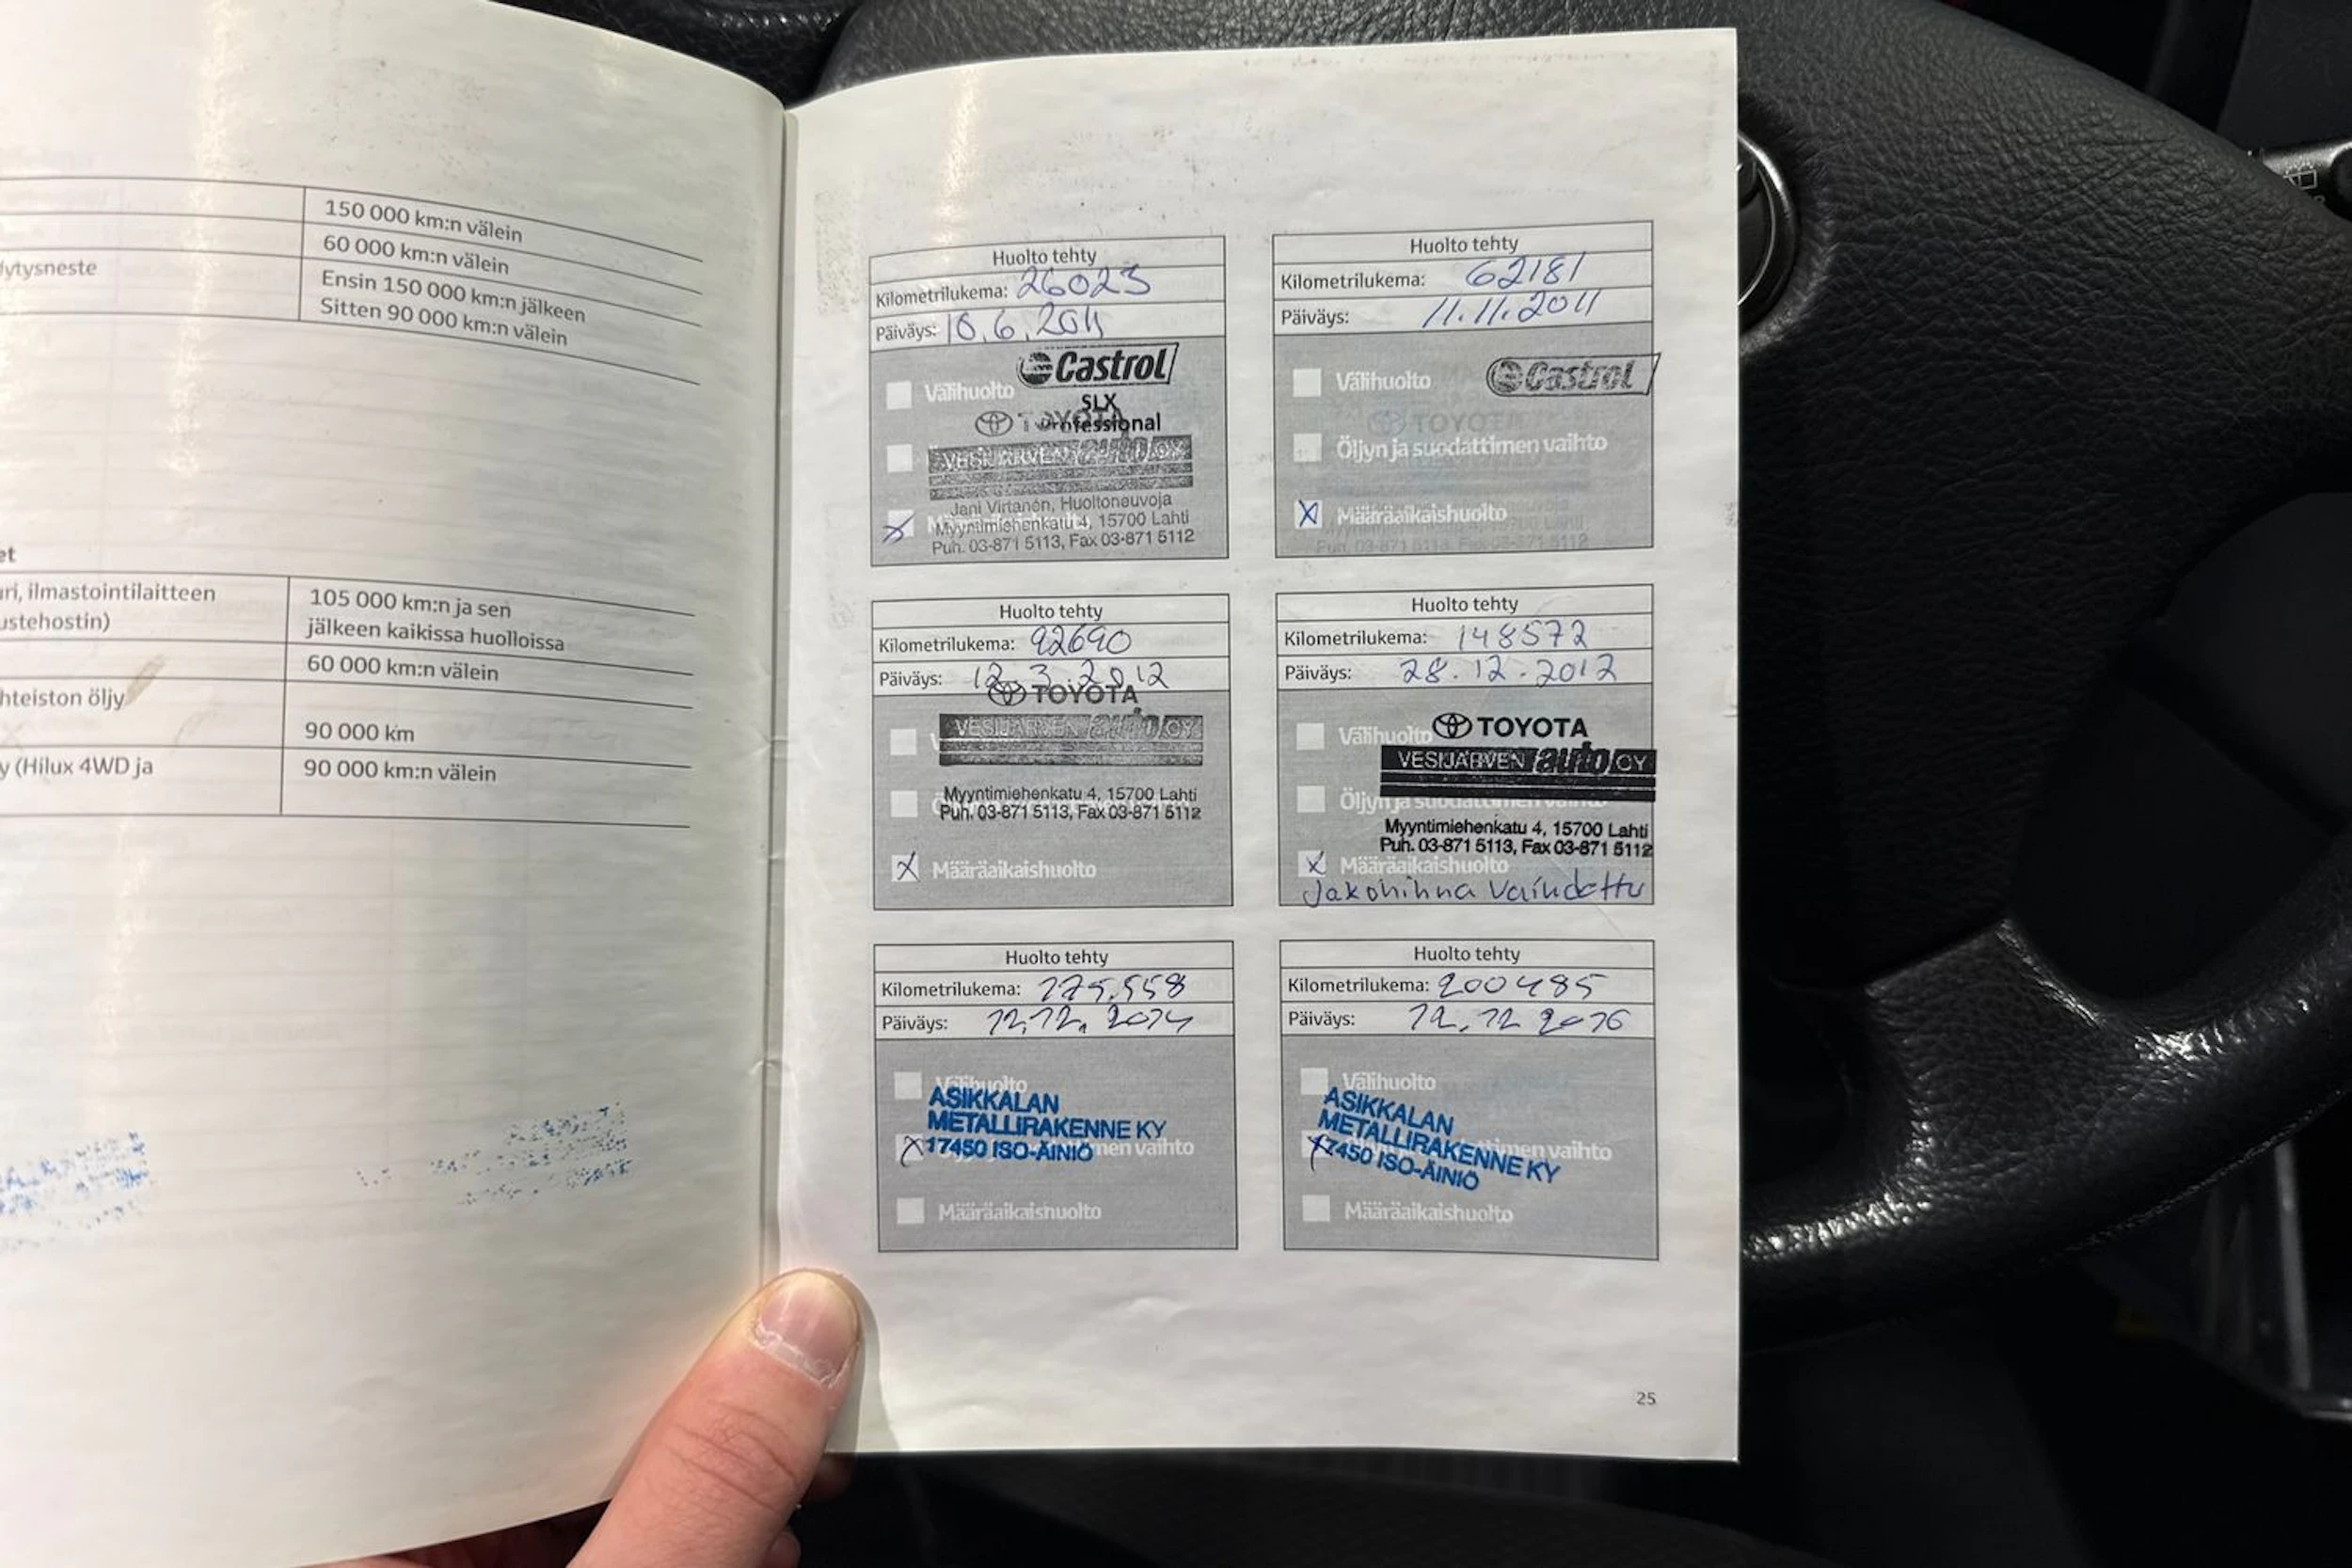 150 000 km:n välein
60 000 km:n välein
Ensin 150 000 km:n jälkeen
Sitten 90 000 km:n välein
105 000 km:n ja sen
jälkeen kaikissa huolloissa
ilmastointilaitteen
60 000 km:n välein
öljy
90 000 km
(Hilux 4WD ja
90 000 km:n välein
Huolto tehty
Kilometrilukema: 26023
Päiväys: 10.6.2011
Castrol
SLX
Välihuolto
TOYOTA Professional
VESIJÄRVEN auto OY
Jani Virtanen, Huoltoneuvoja
Myyntimiehenkatu 4, 15700 Lahti
Puh. 03-871 5113, Fax 03-871 5112
Huolto tehty
Kilometrilukema: 62181
Päiväys: 11.11.2011
Välihuolto
Castrol
TOYOTA
Öljyn ja suodattimen vaihto
X Määräaikaishuolto
Puh. 03-871 5113, Fax 03-871 5112
Huolto tehty
Kilometrilukema: 92690
Päiväys: 12.3.2012
TOYOTA
VESIJÄRVEN auto OY
Myyntimiehenkatu 4, 15700 Lahti
Puh. 03-871 5113, Fax 03-871 5112
X Määräaikaishuolto
Huolto tehty
Kilometrilukema: 148572
Päiväys: 28.12.2012
Välihuolto
TOYOTA
VESIJÄRVEN auto OY
Öljyn ja suodattimen vaihto
Myyntimiehenkatu 4, 15700 Lahti
Puh. 03-871 5113, Fax 03-871 5112
X Määräaikaishuolto
Jakohihna vaihdettu
Huolto tehty
Kilometrilukema: 175.558
Päiväys: 12.12.2014
Välihuolto
ASIKKALAN
METALLIRAKENNE KY
X 17450 ISO-ÄINIÖ
vaihto
Määräaikaishuolto
Huolto tehty
Kilometrilukema: 200485
Päiväys: 12.12 2016
Välihuolto
ASIKKALAN
METALLIRAKENNE KY
X 17450 ISO-ÄINIÖ
vaihto
Määräaikaishuolto
25